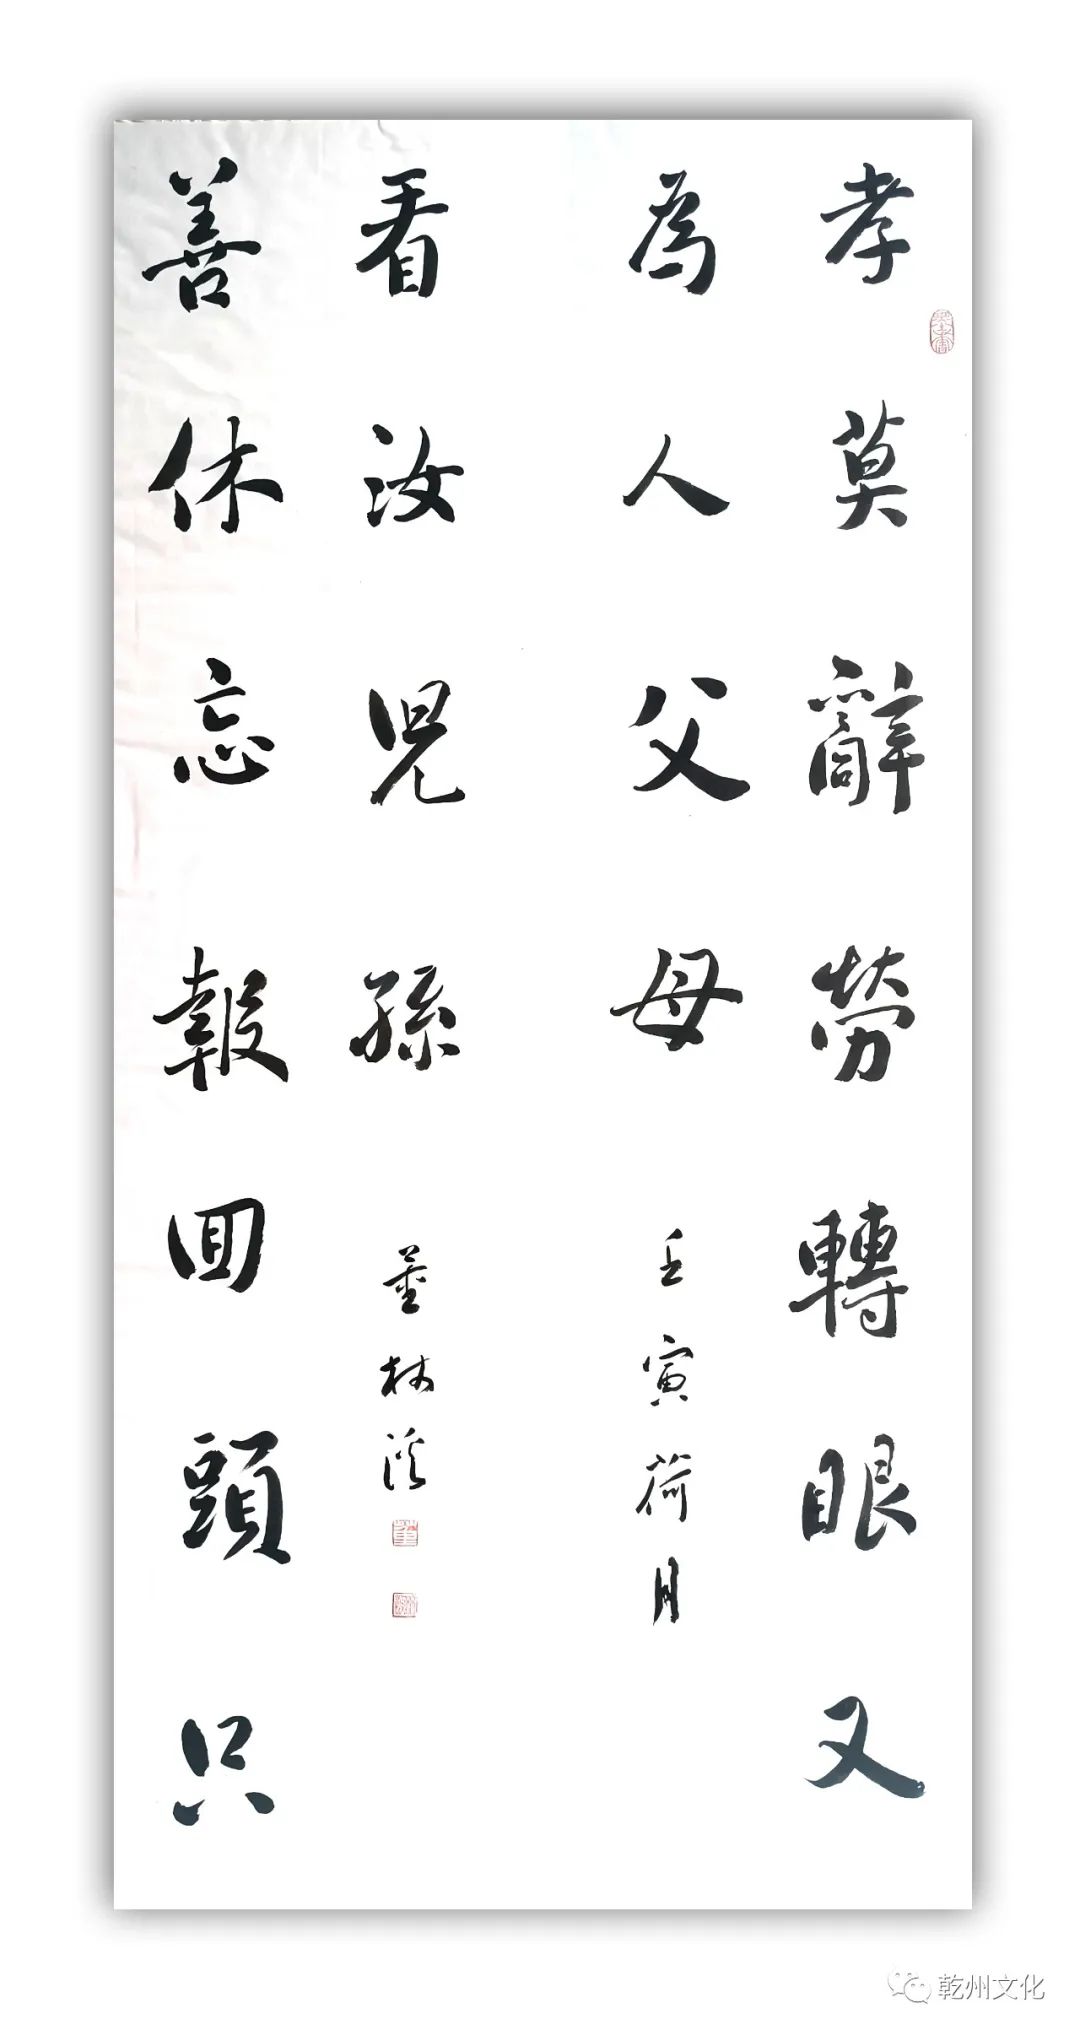 孝莫辭勞轉眼又
為人父母
壬寅荷月
善休忘報囬頭只
看汝兒孫
董林
乾州文化